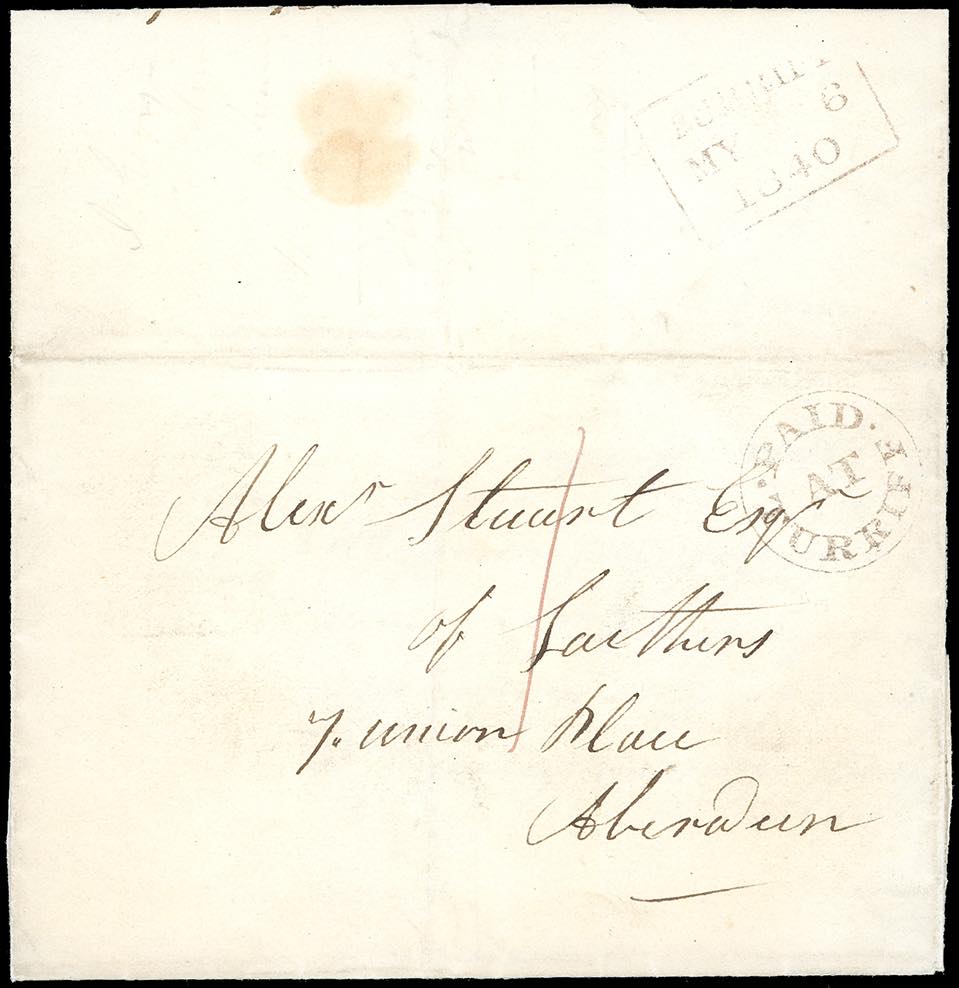 TURRIFF
MY 6
1840
PAID AT TURRIFF
Alexr Stuart Esqr
of Laithers
7. union Place
Aberdeen